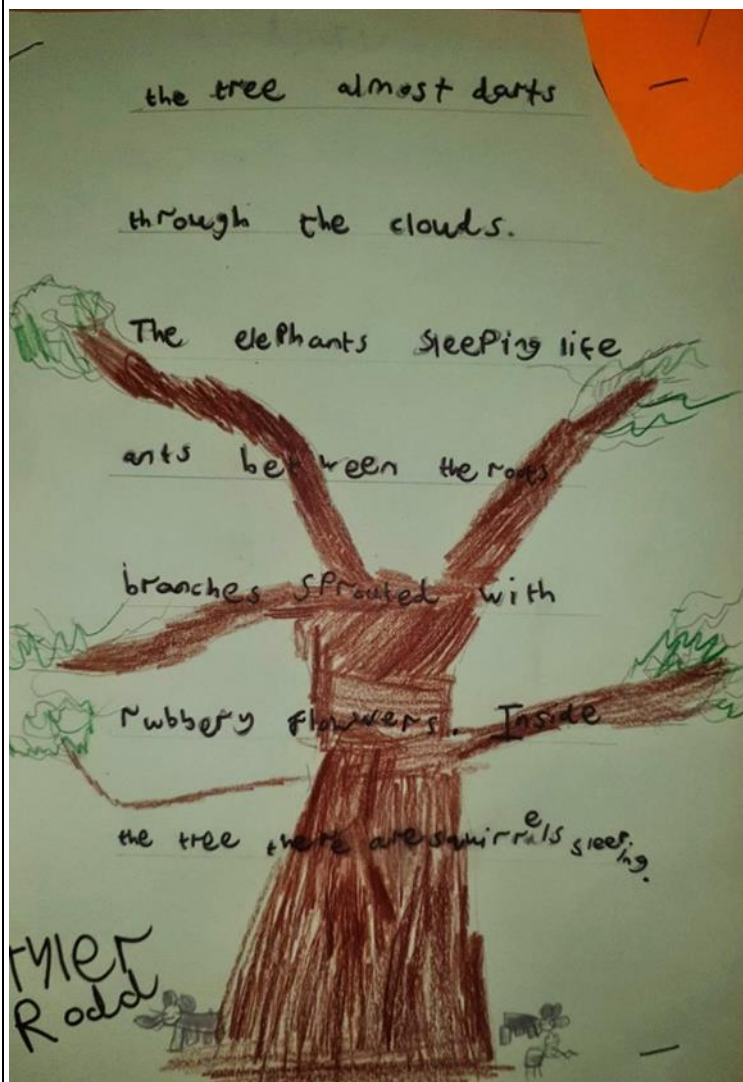 the tree almost darts
through the clouds.
The elephants sleeping life
ants between the roots
branches sprouted with
rubbery flowwers. Inside
the tree there are squirrels sleeping.
Tyler
Rodd